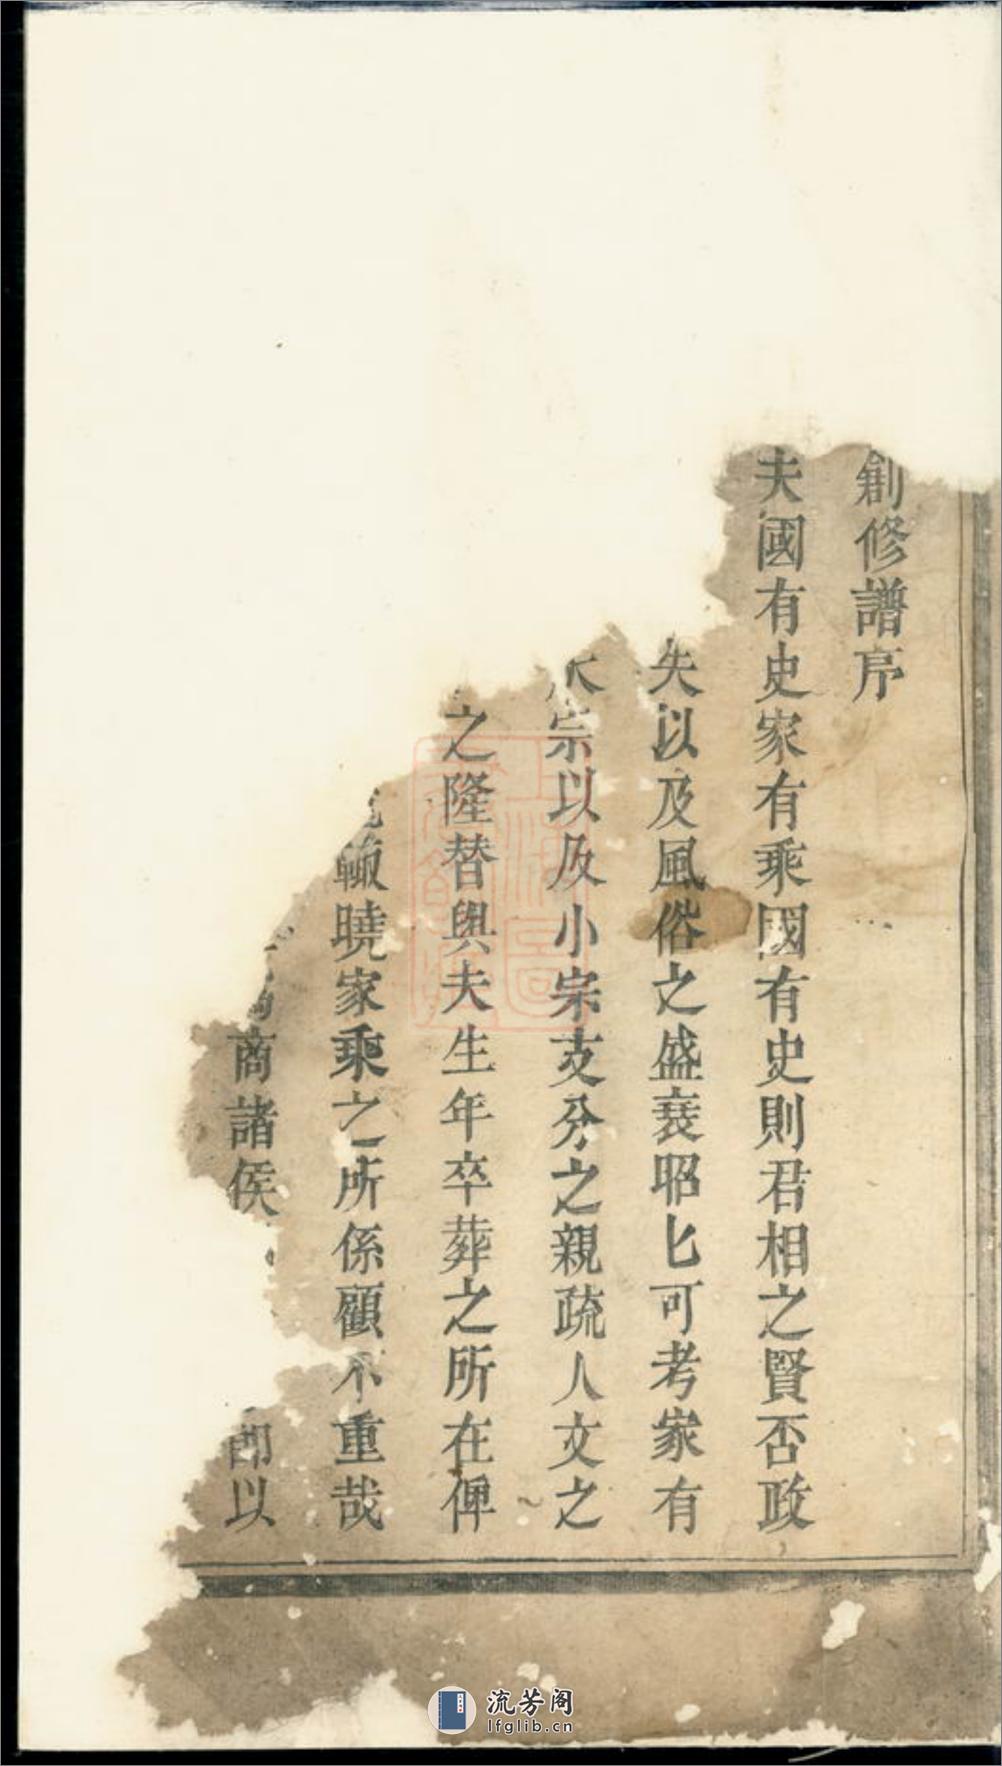 創修譜序
夫國有史家有乘國有史則君相之賢否政
失以及風俗之盛衰昭匕可考家有
宗以及小宗支分之親疏人文之
之隆替與夫生年卒葬之所在俾
輒曉家乘之所係顧不重哉
商諸侯
即以
流芳阁
lfglib.cn